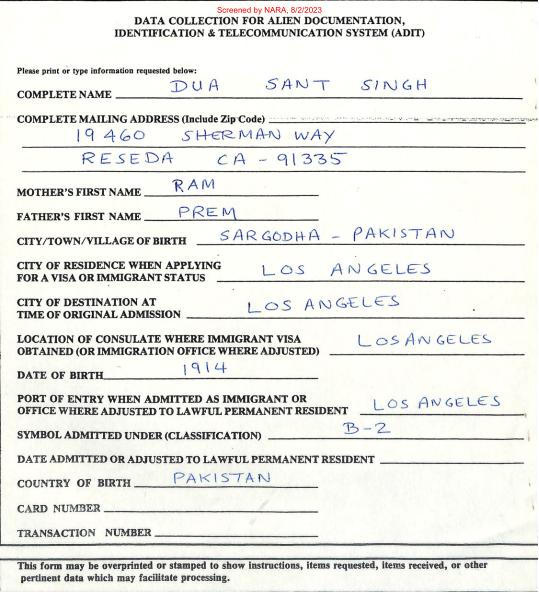 Screened by NARA, 8/2/2023
DATA COLLECTION FOR ALIEN DOCUMENTATION,
IDENTIFICATION & TELECOMMUNICATION SYSTEM (ADIT)
Please print or type information requested below:
COMPLETE NAME DUA SANT SINGH
COMPLETE MAILING ADDRESS (Include Zip Code)
19460 SHERMAN WAY
RESEDA CA - 91335
MOTHER'S FIRST NAME RAM
FATHER'S FIRST NAME PREM
CITY/TOWN/VILLAGE OF BIRTH SARGODHA - PAKISTAN
CITY OF RESIDENCE WHEN APPLYING
FOR A VISA OR IMMIGRANT STATUS LOS ANGELES
CITY OF DESTINATION AT
TIME OF ORIGINAL ADMISSION LOS ANGELES
LOCATION OF CONSULATE WHERE IMMIGRANT VISA
OBTAINED (OR IMMIGRATION OFFICE WHERE ADJUSTED) LOS ANGELES
DATE OF BIRTH 1914
PORT OF ENTRY WHEN ADMITTED AS IMMIGRANT OR
OFFICE WHERE ADJUSTED TO LAWFUL PERMANENT RESIDENT LOS ANGELES
SYMBOL ADMITTED UNDER (CLASSIFICATION) B-2
DATE ADMITTED OR ADJUSTED TO LAWFUL PERMANENT RESIDENT
COUNTRY OF BIRTH PAKISTAN
CARD NUMBER
TRANSACTION NUMBER
This form may be overprinted or stamped to show instructions, items requested, items received, or other
pertinent data which may facilitate processing.